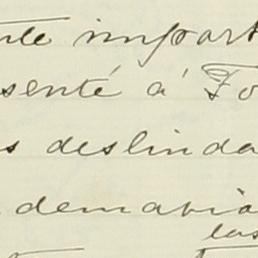 nte import
senté á Fo
s deslinda
demasia
las